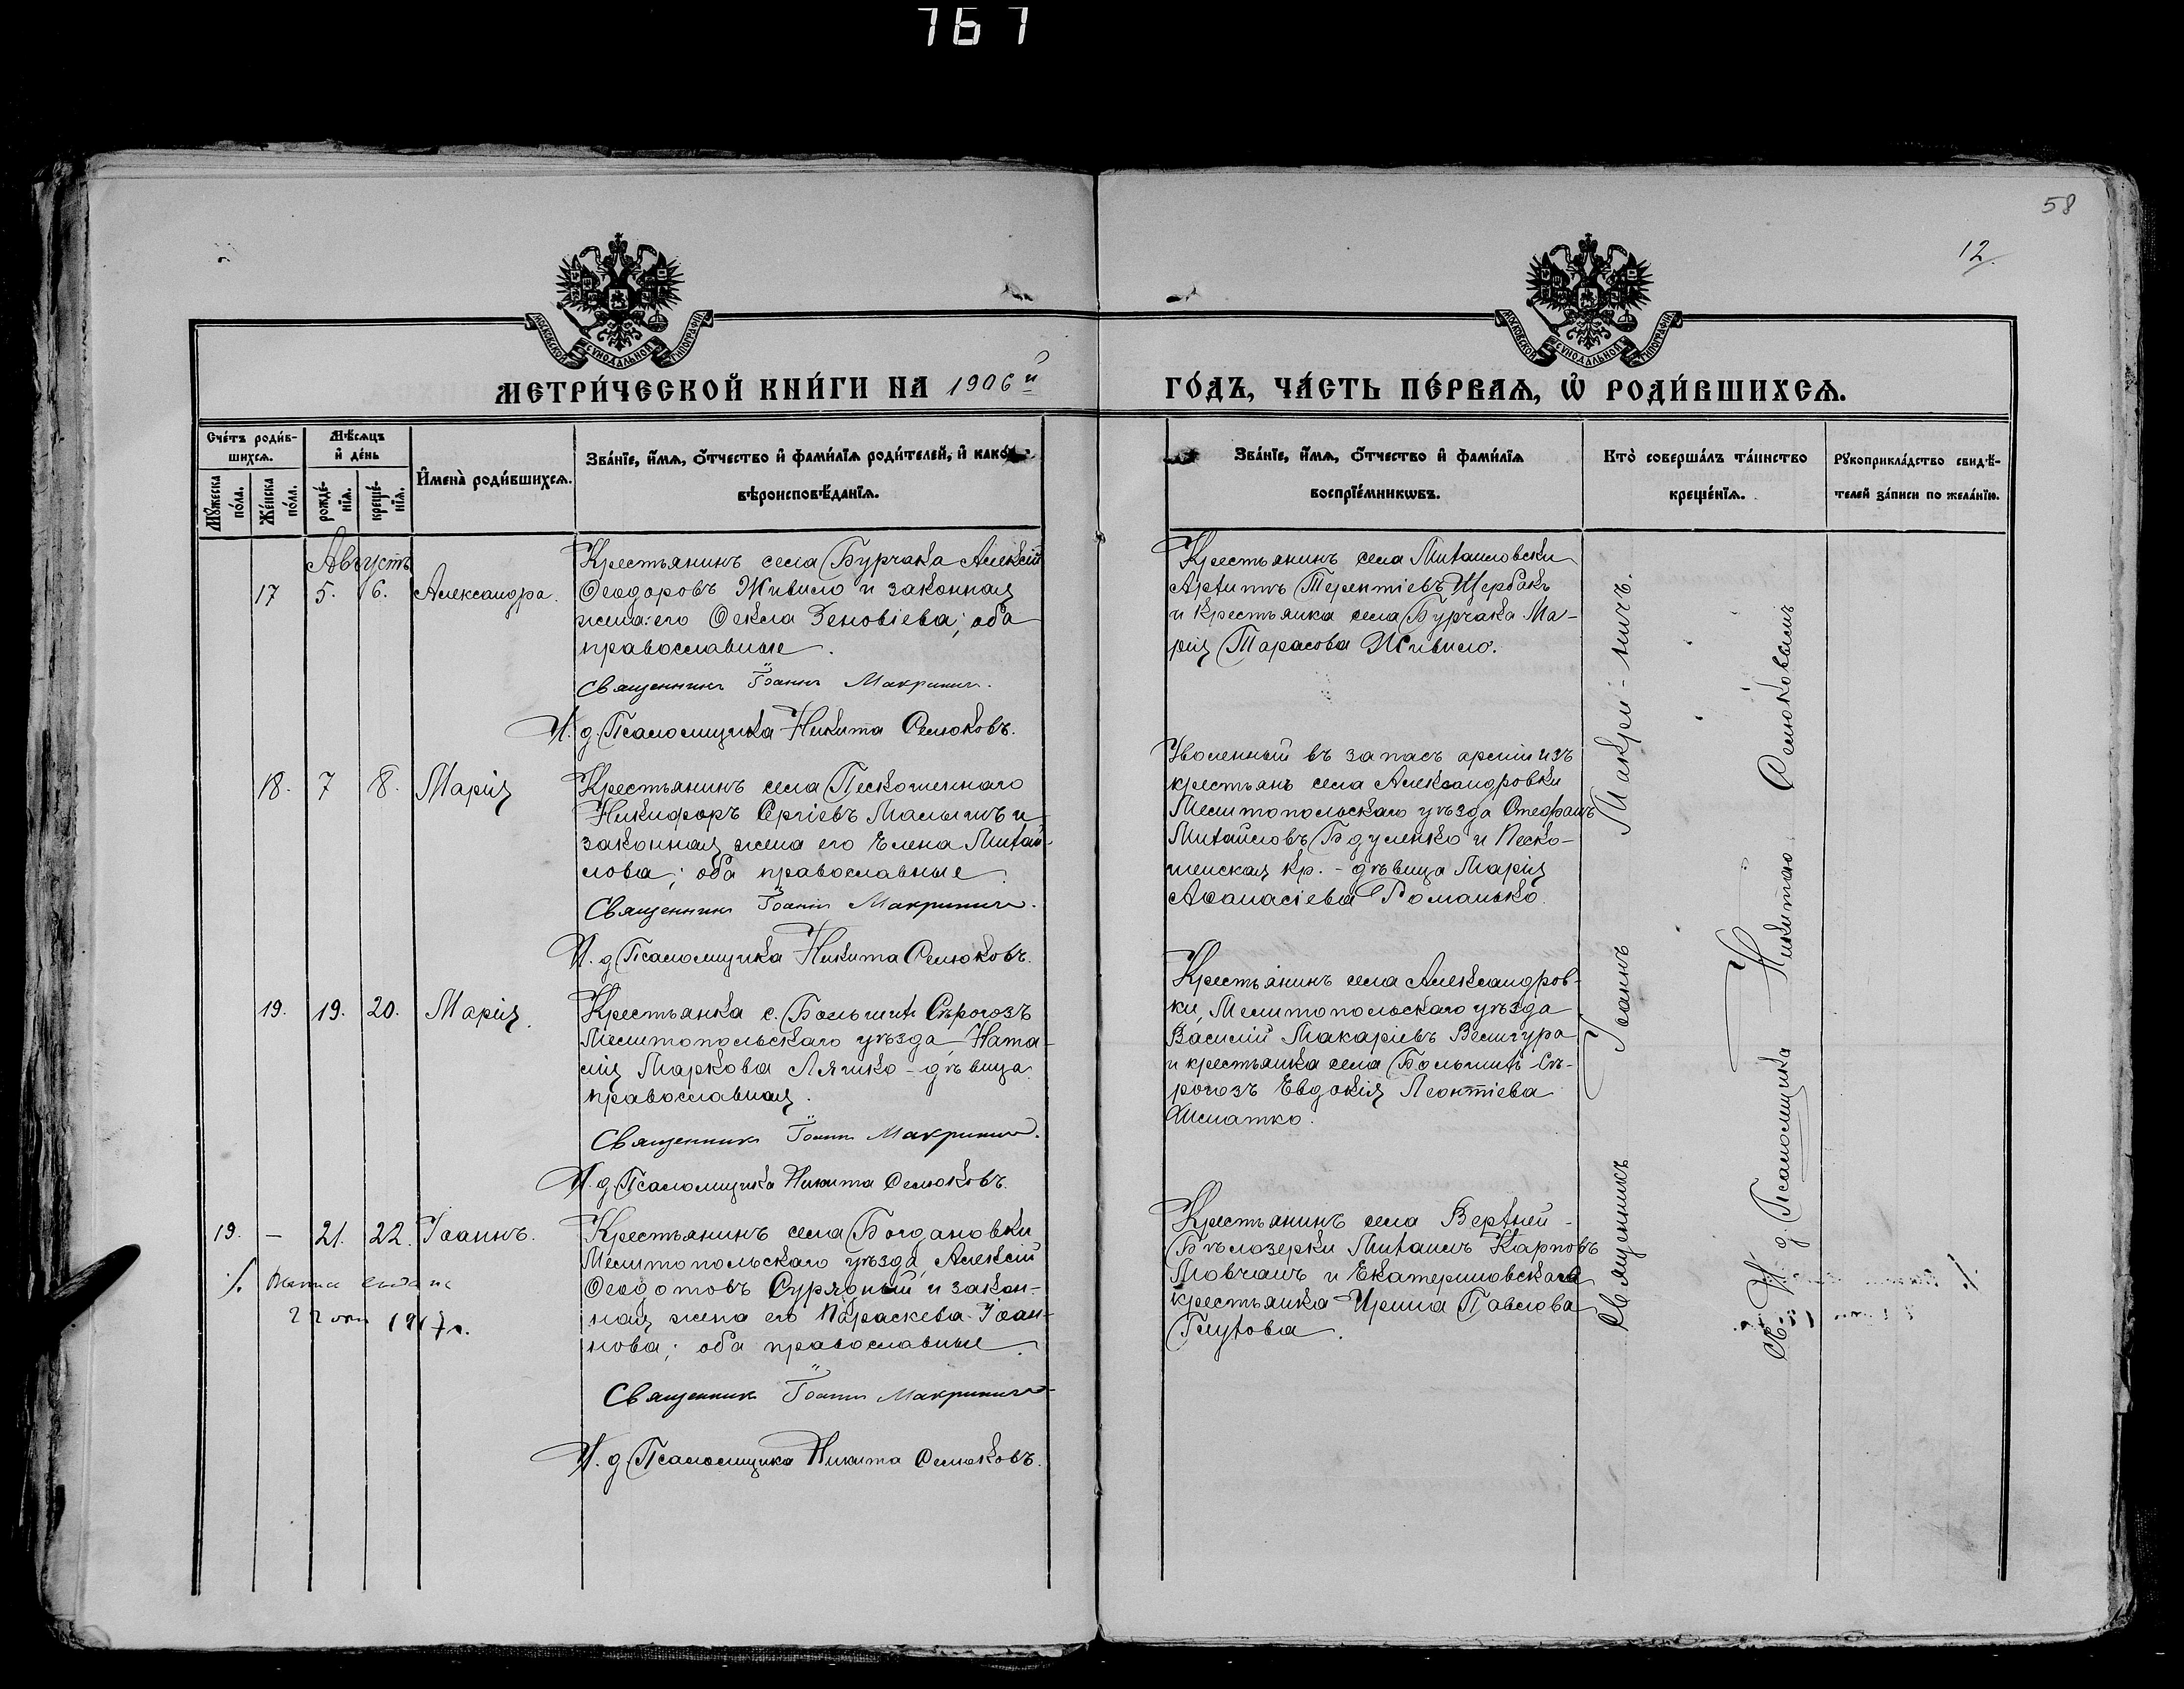 767
58
12
МОСКОВСКОЙ СѴНОДАЛЬНОЙ ТИПОГРАФІИ
МОСКОВСКОЙ СѴНОДАЛЬНОЙ ТИПОГРАФІИ
МЕТРИ́ЧЕСКОЙ КНИ́ГИ НА 1906й
ГО́ДЪ, ЧА́СТЬ ПЕ́РВАѦ, Ѡ҆ РОДИ́ВШИХСѦ.
Сче́тъ роди́в-
шихсѧ.
Мѣ́сѧцъ
и҆ де́нь
Мꙋ́жеска
по́ла.
Же́нска
по́ла.
рожде́-
нїѧ.
креще́-
нїѧ.
И҆мена̀ роди́вшихсѧ.
Зва́нїе, и҆́мѧ, ѻ҆́тчество и҆ фами́лїѧ роди́телей, и҆ како́
вѣроисповѣ́данїѧ.
Зва́нїе, и҆́мѧ, ѻ҆́тчество и҆ фами́лїѧ
воспрїе́мникѡвъ.
Кто̀ соверша́лъ та́инство
креще́нїѧ.
Рꙋкоприкла́дство свидѣ́-
телей за́писи по жела́нїю.
Августъ
17 5. 6. Александра.
Крестьянинъ села Бурчака Алексій
Ѳеодоровъ Живило и законная
жена его Ѳекла Зеновіева; оба
православные.
Священникъ Іоаннъ Макринич.
И. д. Псаломщика Никита Семюковъ.
Крестьянинъ села Михайловки
Архипъ Терентіевъ Щербакъ
и крестьянка села Бурчака Ма-
рія Тарасова Живило.
18. 7 8. Марія
Крестьянинъ села Пескошеннаго
Никифоръ Сергіевъ Малышъ и
законная жена его Елена Михай-
лова; оба православные.
Священникъ Іоаннъ Макринич.
И. д. Псаломщика Никита Семюковъ.
Уволенный въ запасъ арміи изъ
крестьянъ села Александровки
Мелитопольскаго уѣзда Стефанъ
Михайловъ Бдуленко и Песко-
шенская кр. - дѣвица Марія
Аѳанасіева Романько.
19. 19. 20. Марія.
Крестьянка с. Большихъ Сѣрогозъ
Мелитопольскаго уѣзда, Ната-
лія Маркова Ляшко - дѣвица
православная.
Священникъ Іоаннъ Макринич.
И. д. Псаломщика Никита Семюковъ.
Крестьянинъ села Александров-
ки, Мелитопольскаго уѣзда
Василій Макаріевъ Величура
и крестьянка села Большихъ Сѣ-
рогозъ Евдокія Леонтіева
Шматко.
19. — 21. 22. Іоаннъ.
22 1917 г.
Крестьянинъ села Богдановки
Мелитопольскаго уѣзда, Алексій
Ѳеодотовъ Сурядный и закон-
ная жена его Параскева Іоан-
нова; оба православные.
Священникъ Іоаннъ Макринич.
И. д. Псаломщика Никита Семюковъ.
Крестьянинъ села Верхней-
Бѣлозерки Михаилъ Карповъ
Мовчанъ и Екатериновская
крестьянка Ирина Павлова
Глухова.
Священникъ Іоаннъ Макри-ничъ.
И. д. Псаломщика Никитою Семюковымъ